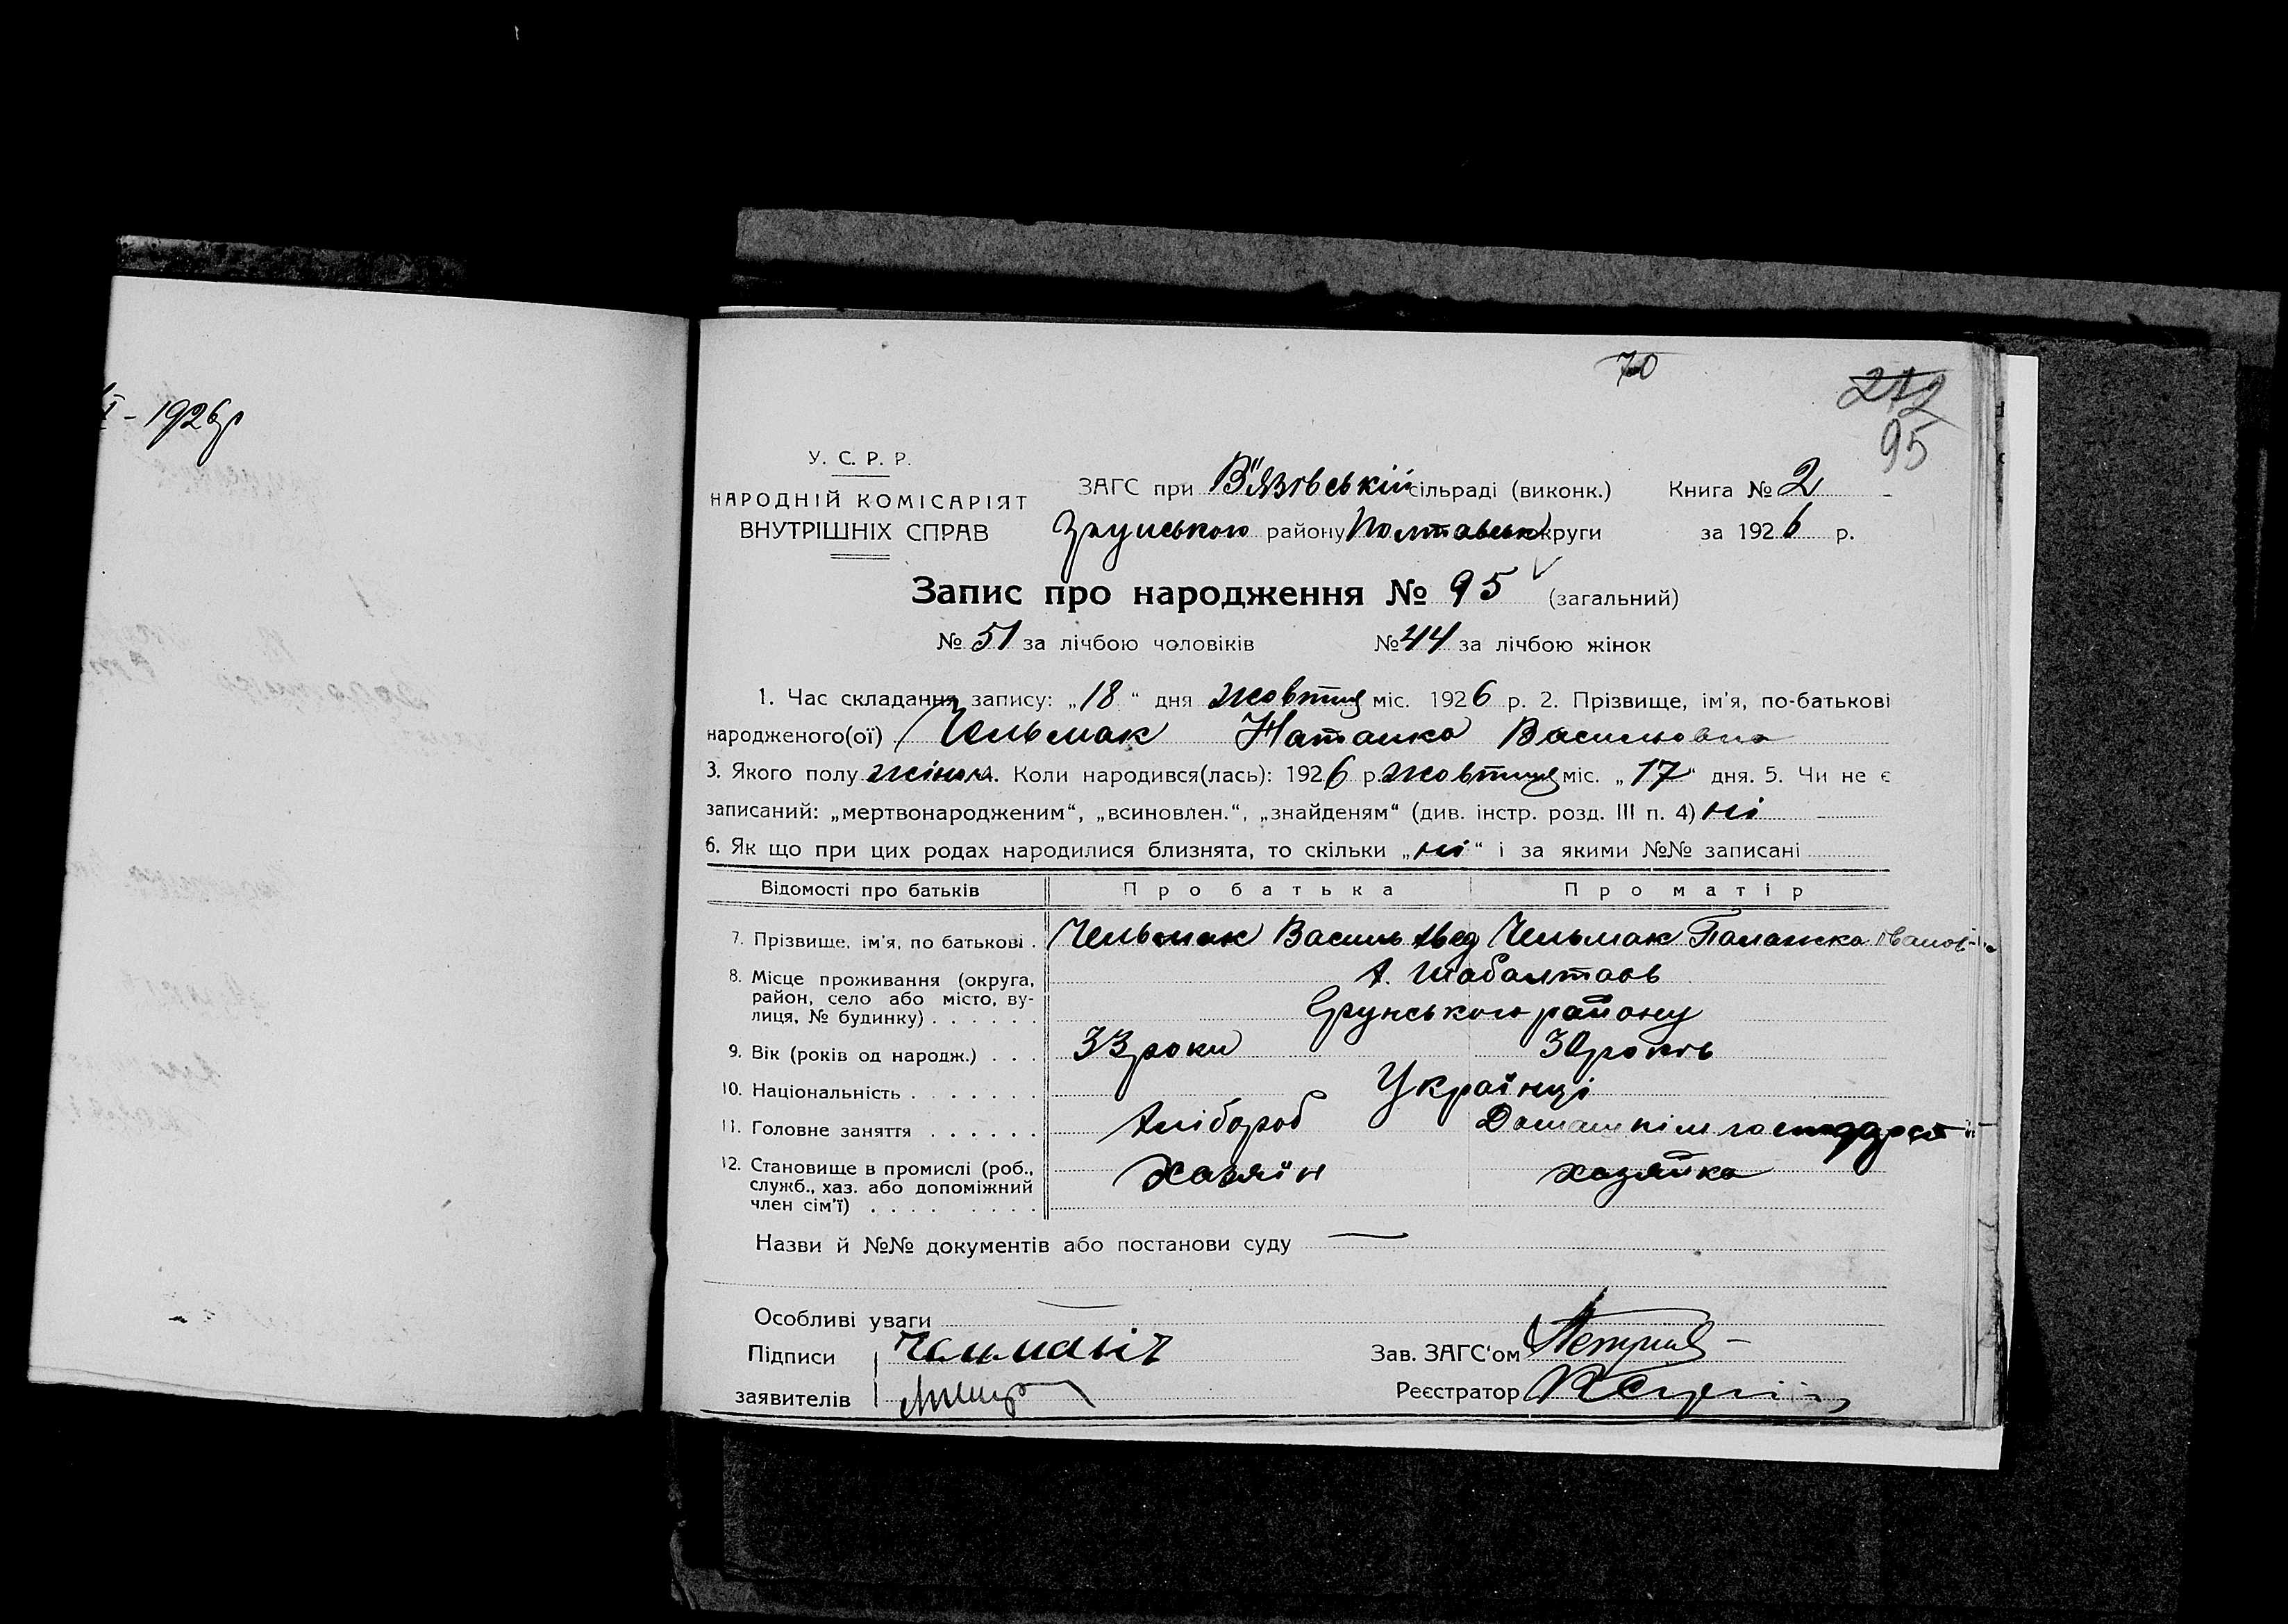 - 1926р
70
212
95
У. С. Р. Р.
НАРОДНІЙ КОМІСАРІЯТ
ВНУТРІШНІХ СПРАВ
ЗАГС при В'язівській сільраді (виконк.) Книга № 2
Грунського району Полтавськ округи за 1926 р.
Запис про народження № 95 (загальний)
№ 51 за лічбою чоловіків № 44 за лічбою жінок
1. Час складання запису: „18“ дня жовтня міс. 1926 р. 2. Прізвище, ім'я, по-батькові
народженого(ої) Чельмак Наталка Васильовна
3. Якого полу жіноч. 4. Коли народився(лась): 1926 р. жовтня міс. „17“ дня. 5. Чи не є
записаний: „мертвонародженим“, „всиновлен.“, „знайденям“ (див. інстр. розд. III п. 4) ні
6. Як що при цих родах народилися близнята, то скільки „ні“ і за якими №№ записані
Відомості про батьків Про батька Про матір
7. Прізвище, ім'я, по батькові . Чельмак Василь Чельмак Палажка Іванов-
8. Місце проживання (округа, х. Шабалтаєв
район, село або місто, ву-
лиця, № будинку) . . . . . . Грунського району
9. Вік (років од народж.) . . . 33 роки 30 років
10. Національність . . . . . . . Українці
11. Головне заняття . . . . . . Хлібороб Домашнім господарст
12. Становище в промислі (роб., Хазяїн хазяйка
служб., хаз. або допоміжний
член сім'ї) . . . . . . . .
Назви й №№ документів або постанови суду —
Особливі уваги —
Підписи Зав. ЗАГС'ом
заявителів Реєстратор